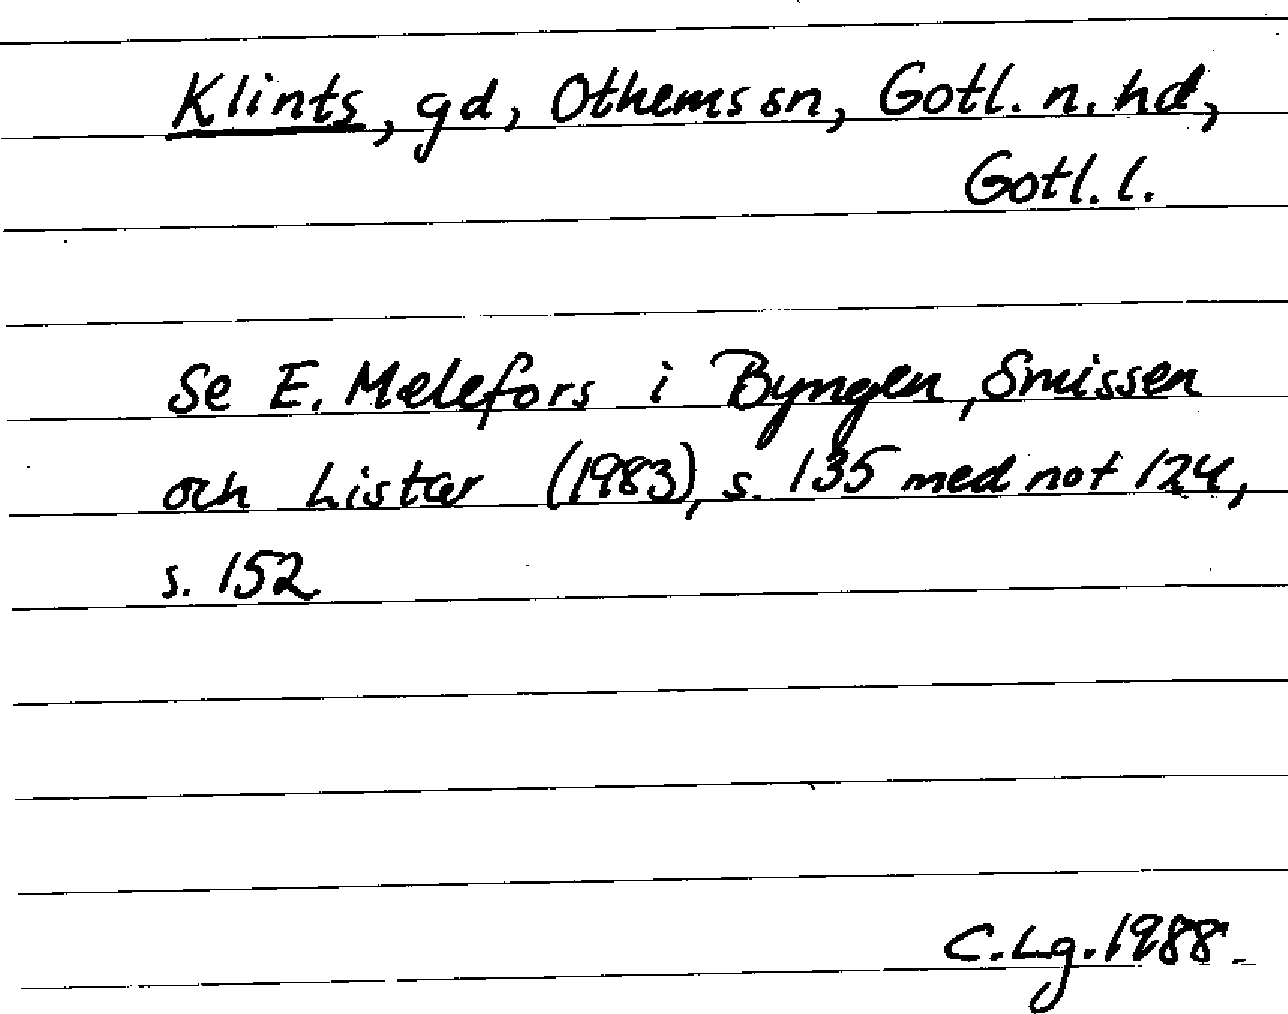 Klints, gd, Othems sn, Gotl. n. hd,
Gotl. l.
Se E. Melefors i Byngen, Smissen
och Listar (1983), s. 135 med not 124,
s. 152
C. Lg. 1988.